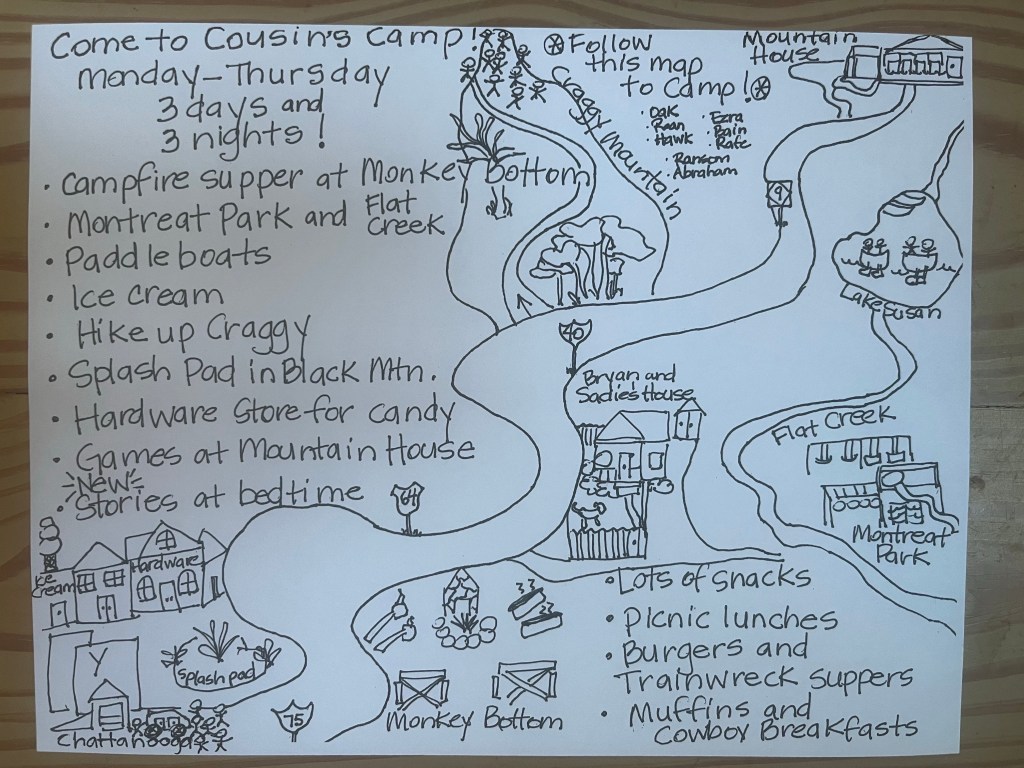 Come to Cousin's Camp!
Monday-Thursday
3 days and
3 nights!
• Campfire supper at Monkey Bottom
• Montreat Park and Flat
Creek
• Paddleboats
• Ice Cream
• Hike up Craggy
• Splash Pad in Black Mtn.
• Hardware Store for candy
• Games at Mountain House
New
• Stories at bedtime
Follow
this map
to Camp!
• Oak
• Roan
• Hawk
• Ezra
• Bain
• Rate
• Ransom
• Abraham
Craggy Mountain
Mountain
House
9
40
Lake Susan
Bryan and
Sadie's House
Flat Creek
Montreat
Park
64
Ice
Cream
Hardware
Y
Splash pad
Chattanooga
75
Monkey Bottom
• Lots of snacks
• Picnic lunches
• Burgers and
Trainwreck suppers
• Muffins and
Cowboy Breakfasts